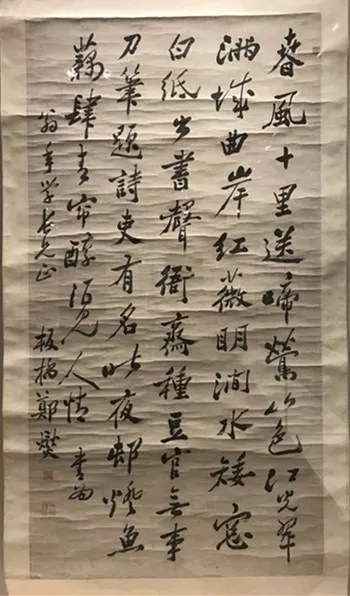 春風十里送啼鶯山色江光翠
滿城曲岸紅薇明澗水矮窓
白紙出書聲衙齋種豆官無事
刀筆題詩吏有名昨夜邨燈魚
藕肆青帘酒見人情 書為
翁年学老兄正 板橋鄭燮